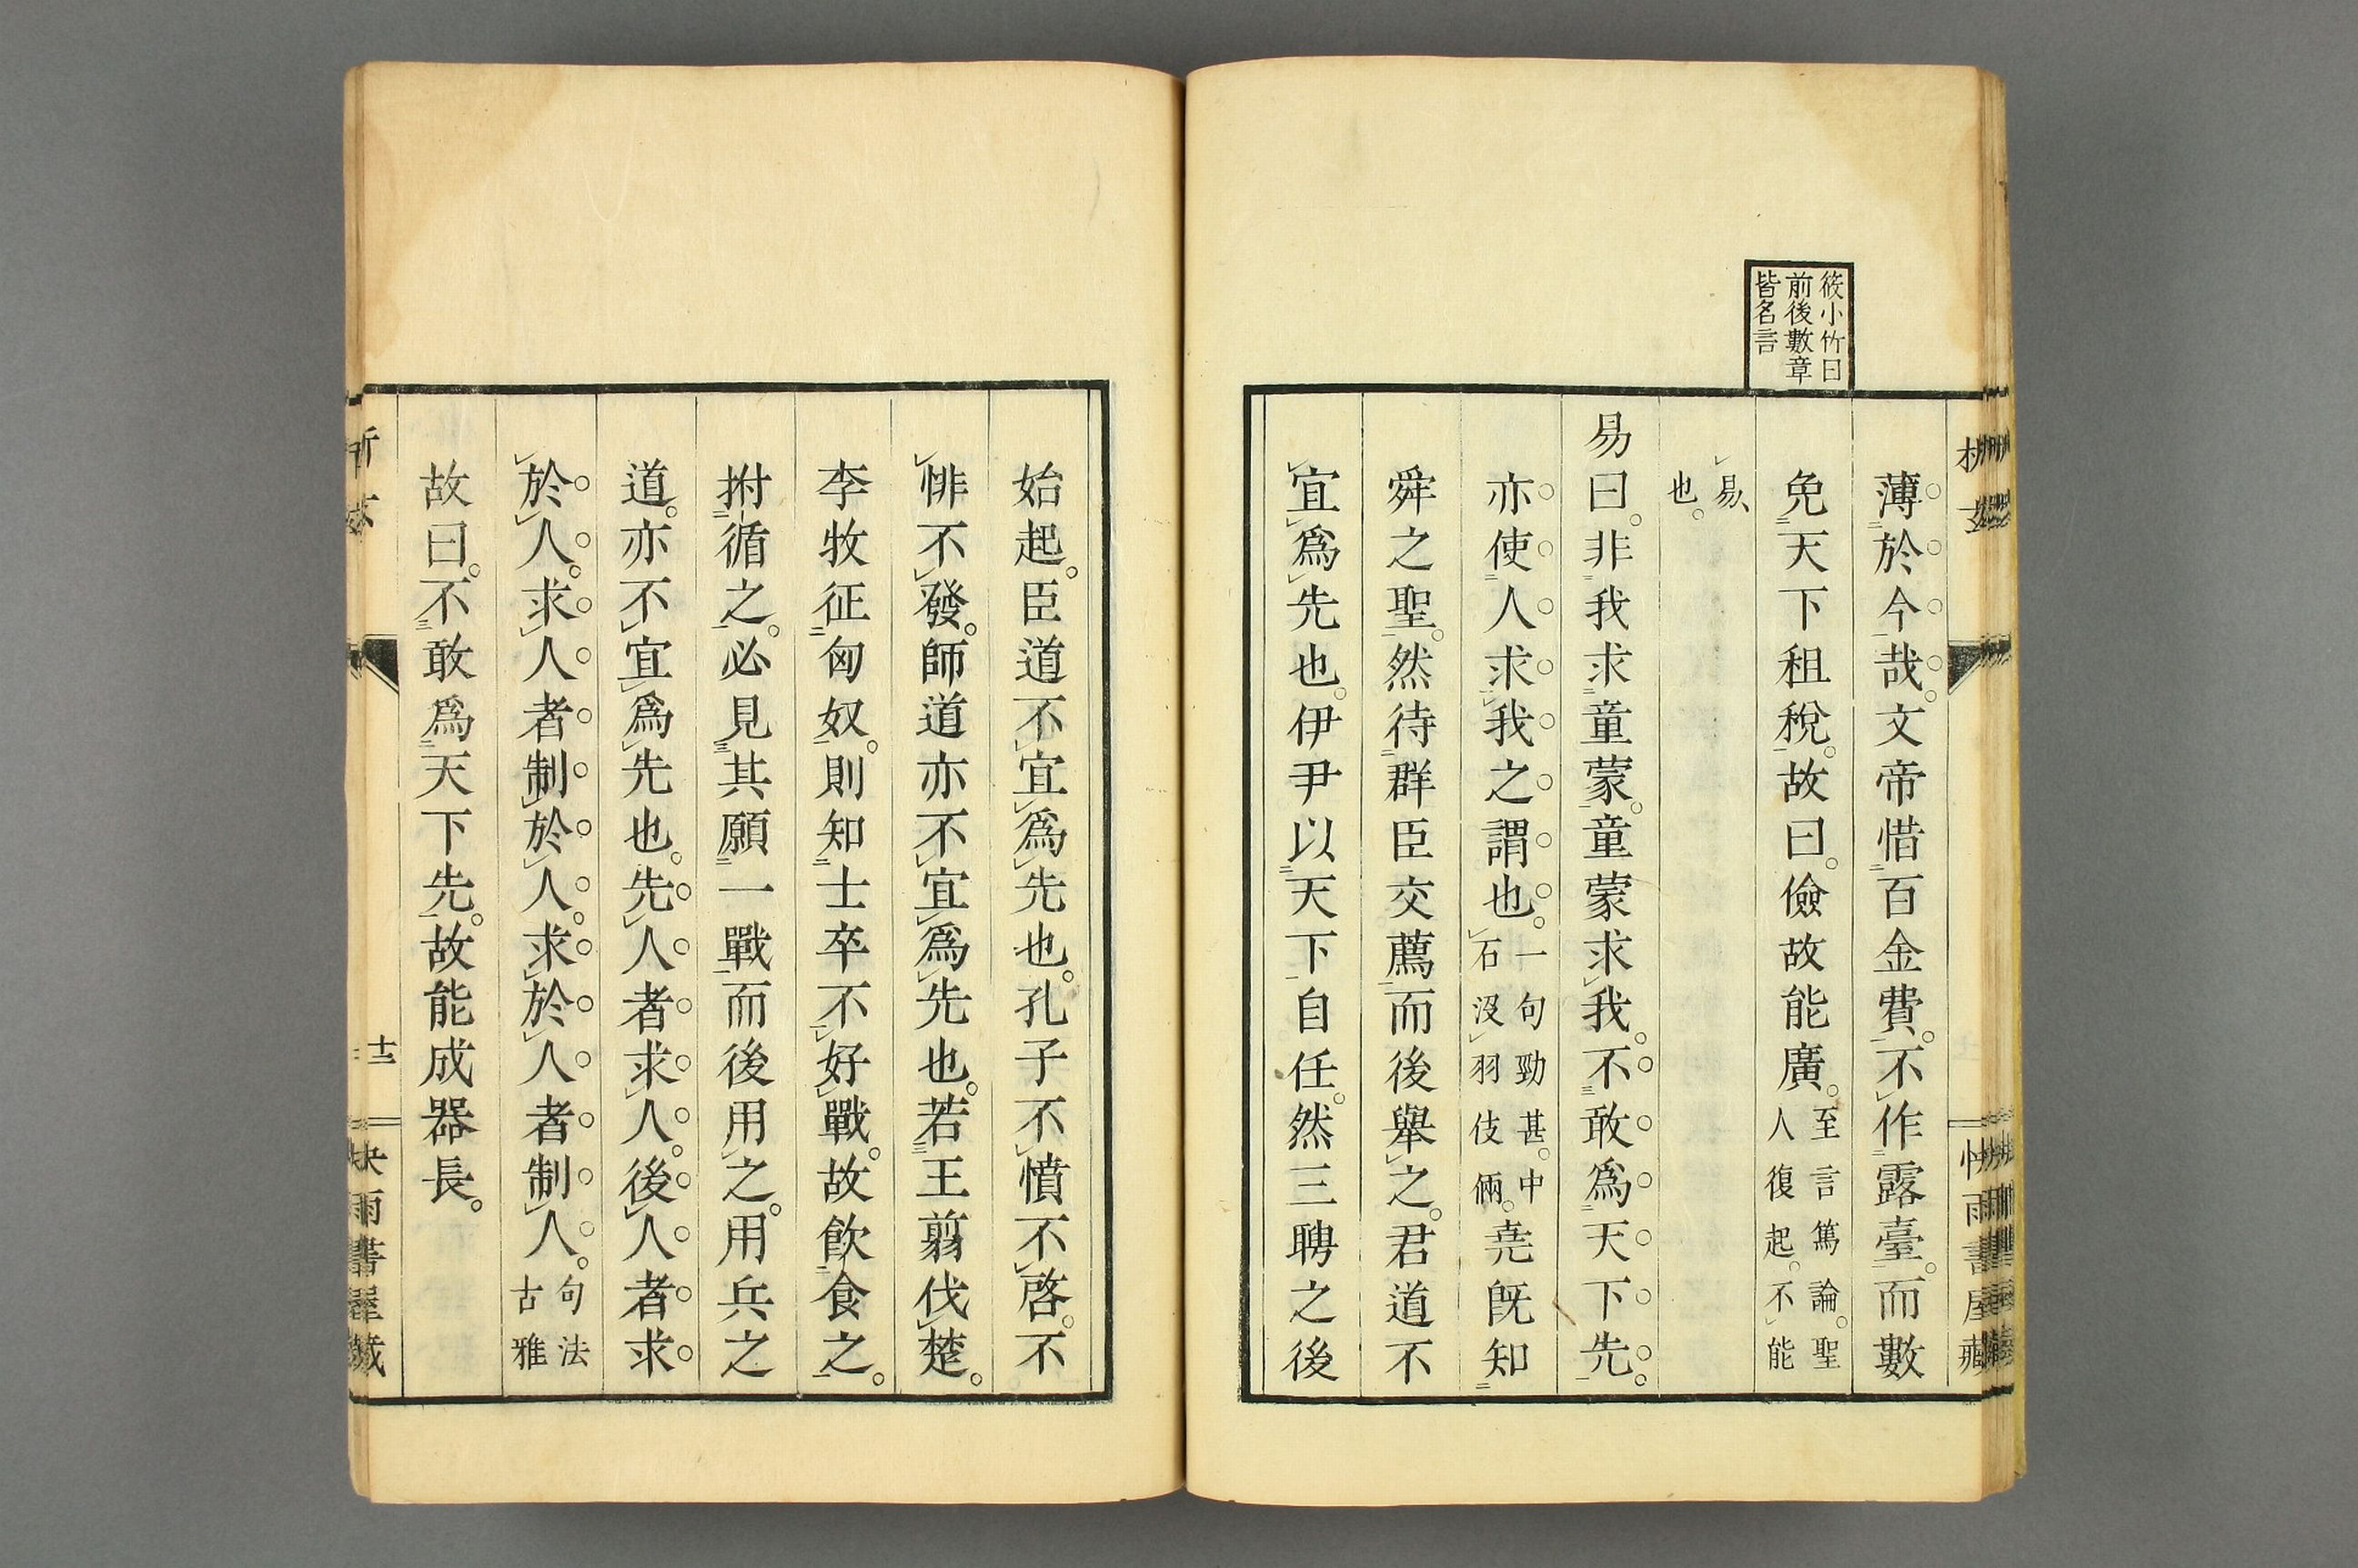 筱小竹曰
前後數章
皆名言
薄於今哉。文帝惜百金費。不作露臺。而數
免天下租稅。故曰。儉故能廣。至言篤論。聖人復起。不能
易也。
易曰。非我求童蒙。童蒙求我。不敢爲天下先。
亦使人求我之謂也。一句勁甚。中石沒羽伎倆。堯旣知
舜之聖。然待群臣交薦而後舉之。君道不
宜爲先也。伊尹以天下自任。然三聘之後
始起。臣道不宜爲先也。孔子不憤不啓。不
悱不發。師道亦不宜爲先也。若王翦伐楚。
李牧征匈奴。則知士卒不好戰。故飲食之。
拊循之。必見其願一戰而後用之。用兵之
道。亦不宜爲先也。先人者求人。後人者求
於人。求人者制於人。求於人者制人。句法古雅
故曰。不敢爲天下先。故能成器長。
十二
快雨書屋藏